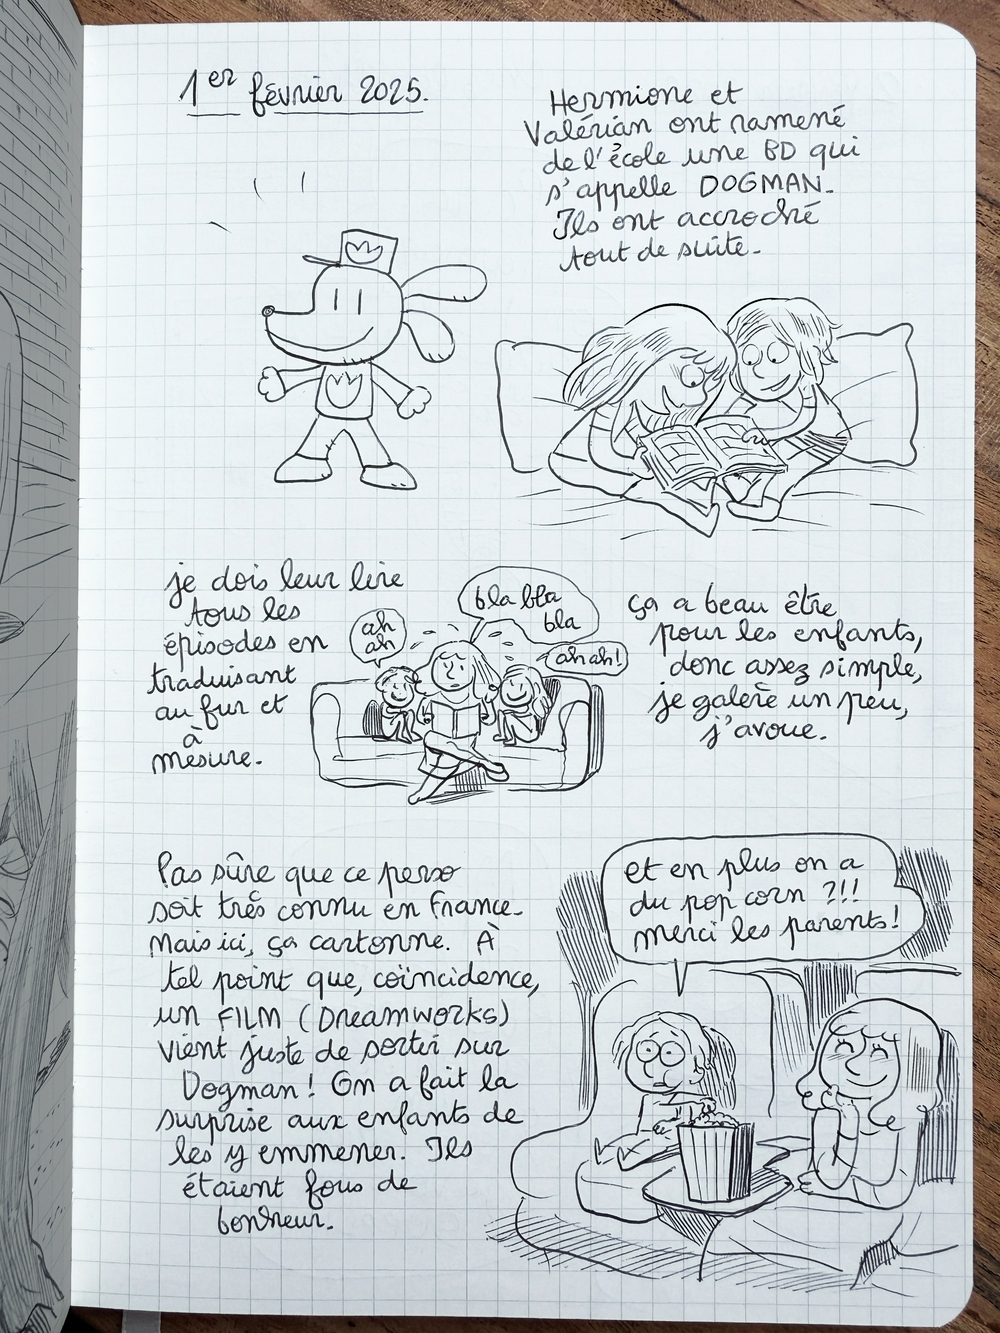 1er février 2025.
Hermione et
Valérian ont ramené
de l'école une BD qui
s'appelle DOGMAN.
Ils ont accroché
tout de suite.
je dois leur lire
tous les
épisodes en
traduisant
au fur et
à
mesure.
ah
ah
bla bla
bla
ah ah!
ça a beau être
pour les enfants,
donc assez simple,
je galère un peu,
j'avoue.
Pas sûre que ce perso
soit très connu en France.
Mais ici, ça cartonne. À
tel point que, coïncidence,
un FILM (DREAMWORKS)
vient juste de sortir sur
Dogman! On a fait la
surprise aux enfants de
les y emmener. Ils
étaient fous de
bonheur.
et en plus on a
du pop corn ?!!
merci les parents!